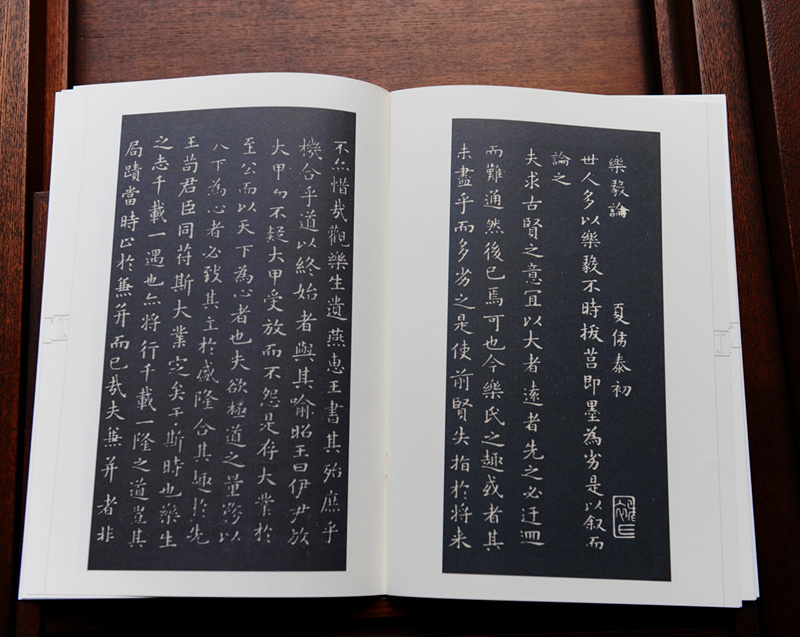 樂毅論 夏侯泰初
世人多以樂毅不時拔莒即墨為劣是以叙而
論之
夫求古賢之意宜以大者遠者先之必迂迴
而難通然後已焉可也今樂氏之趣或者其
未盡乎而多劣之是使前賢失指於將來
不亦惜哉觀樂生遺燕惠王書其殆庶乎
機合乎道以終始者與其喻昭王曰伊尹放
大甲而不疑大甲受放而不怨是存大業於
至公而以天下為心者也夫欲極道之量務以
天下為心者必致其主於盛隆合其趣於先
王苟君臣同苻斯大業定矣于斯時也樂生
之志千載一遇也亦將行千載一隆之道豈其
局蹟當時止於兼并而已哉夫兼并者非